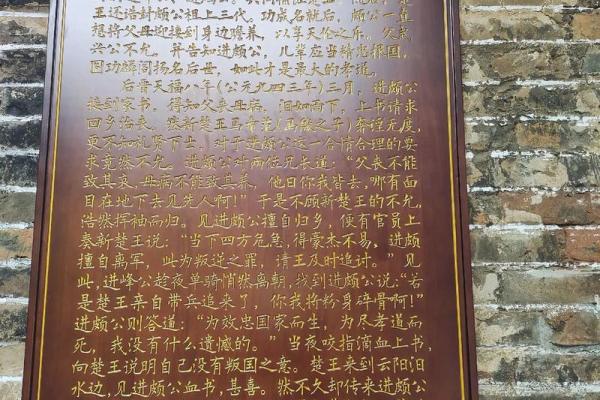 王还诰封颇公祖上三代。功点名就后，颇公一直
想将父母迎接到身边赡养，以享天伦之乐。父
兴公不允，并告知进颇公，儿辈应当精忠报国，
因功勋阀阅扬名后世，如此才是最大的孝道。
后晋天福八年(公元九四三年)三月，进颇公
接到家书，得知父丧母病，泪如雨下，上书请求
回乡治丧。然新楚王马希范(马殷之子)奢淫无度，
更不知礼贤下士，对于进颇公这一合情合理的要
求竟然不允。进颇公对两位兄长道："父丧不能
致其哀，母病不能致其养，他日你我皆去，哪有面
目在地下去见先人啊!"于是不顾新楚王的不允，
浩然挥袖而归。见进颇公擅自归乡，便有官员上
奏新楚王说："当下四方危急，得豪杰不易，进颇
擅自离军，此为叛逆之罪，请王及时追讨。"见
此，进峰公趁夜单骑悄然离朝，找到进颇公说:"若
是楚王亲自带兵追来了，你我将粉身碎骨啊!"
进颇公则答道："为效忠国家而生，为尽孝道而
死，我没有什么遗憾的。"当夜咬指滴血上书，
向楚王说明自己没有叛国之意。楚王来到云阳泊
水边，见进颇公血书，甚喜。然不久却传来进颇公